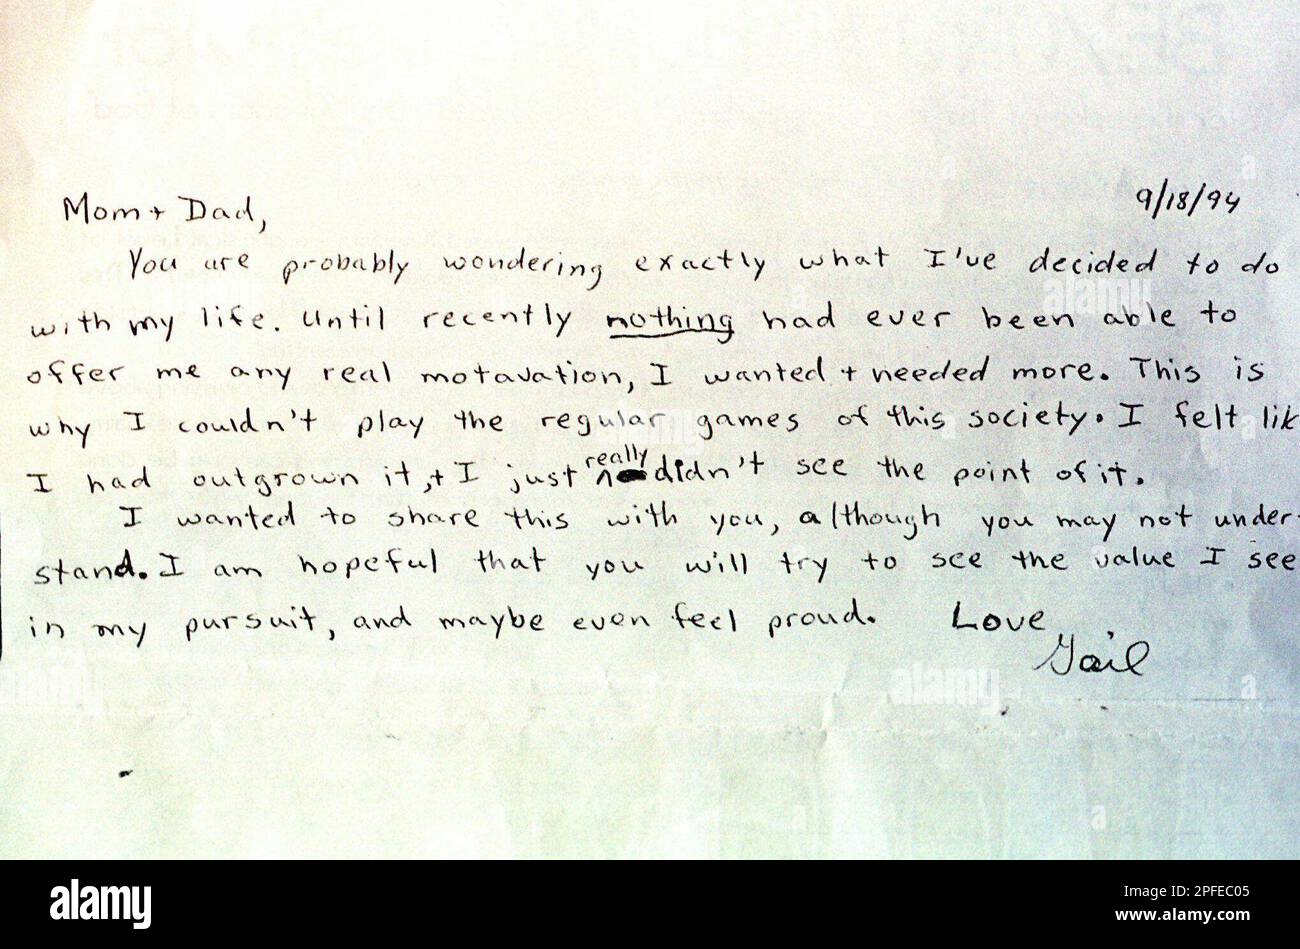 9/18/94
Mom + Dad,
You are probably wondering exactly what I've decided to do
with my life. Until recently nothing had ever been able to
offer me any real motavation, I wanted + needed more. This is
why I couldn't play the regular games of this society. I felt lik
I had outgrown it, + I just really didn't see the point of it.
I wanted to share this with you, although you may not under-
stand. I am hopeful that you will try to see the value I see
in my pursuit, and maybe even feel proud. Love,
Gail
alamy
alamy
alamy
alamy
a
a
a
alamy
Image ID: 2PFEC05
www.alamy.com